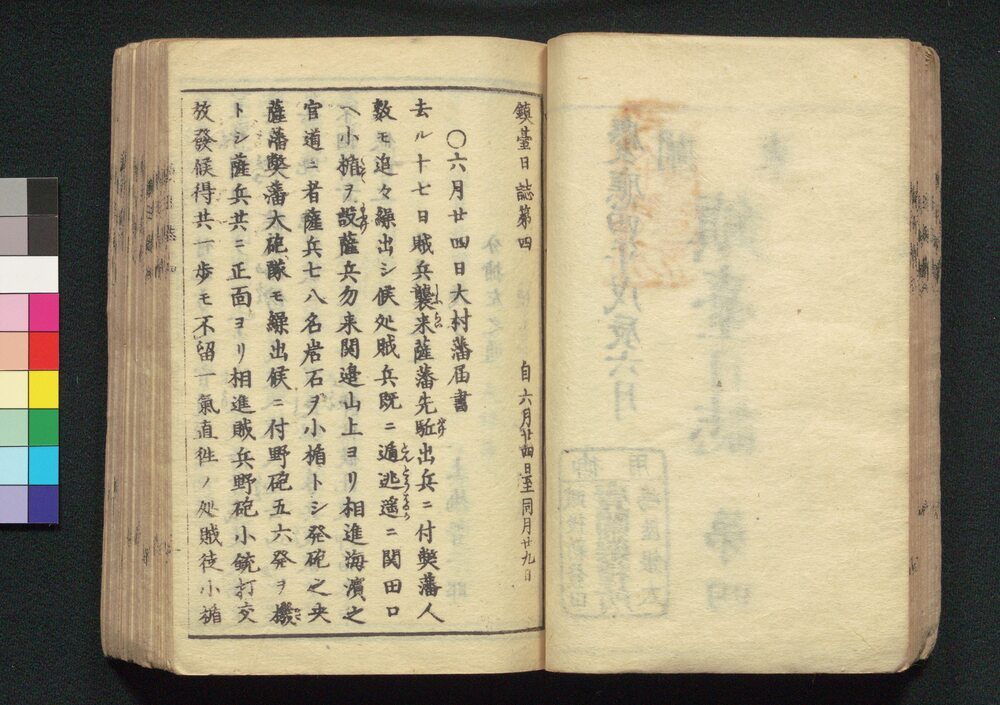 鎮臺日誌第四　自六月廿四日至同月廿九日
〇六月廿四日大村藩届書
去ル十七日賊兵襲来薩藩先駈出兵ニ付弊藩人
数モ追々繰出シ候処賊兵既ニ遁逃遥ニ関田口
ヘ小楯ヲ設薩兵勿来関邉山上ヨリ相進海濱之
官道ニ者薩兵七八名岩石ヲ小楯トシ発砲之央
薩藩弊藩大砲隊モ繰出候ニ付野砲五六発ヲ機
トシ薩兵共ニ正面ヨリ相進賊兵野砲小銃打交
放發候得共一歩モ不留一氣直徃ノ処賊徒小楯